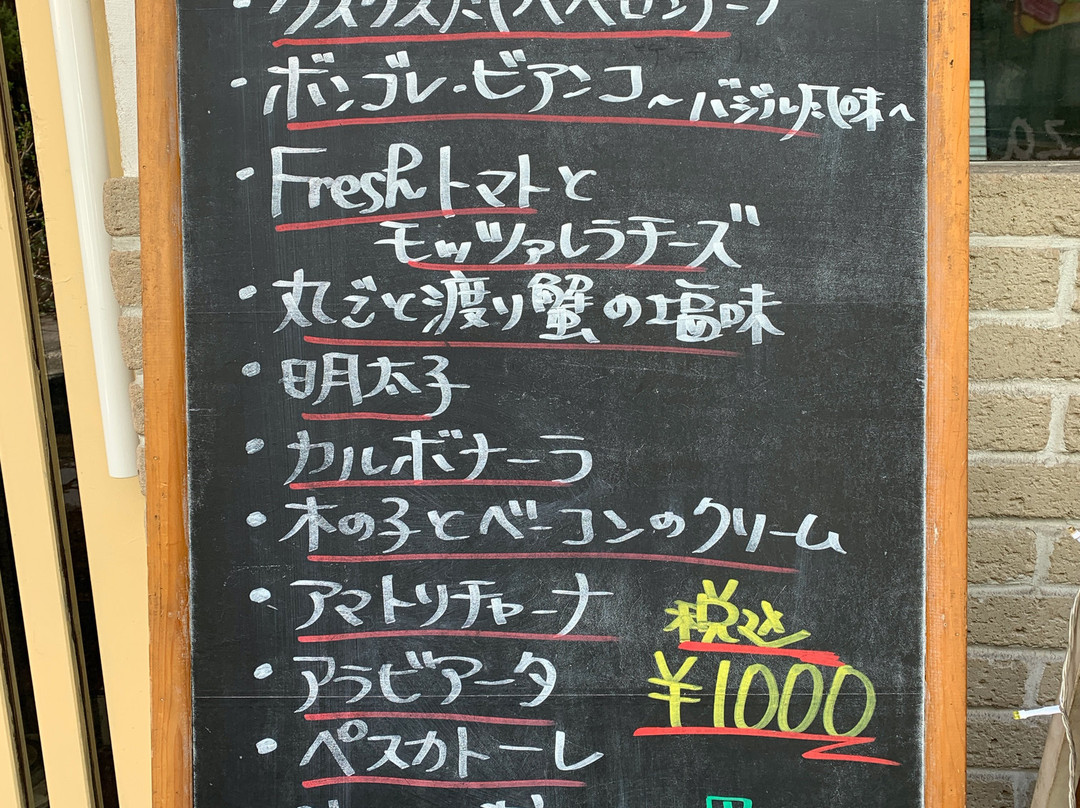 ・ボンゴレ・ビアンコ〜バジル風味〜
・Freshトマトと
モッツァレラチーズ
・丸ごと渡り蟹の塩味
・明太子
・カルボナーラ
・木の子とベーコンのクリーム
・アマトリチャーナ
税込
・アラビアータ
¥1000
・ペスカトーレ